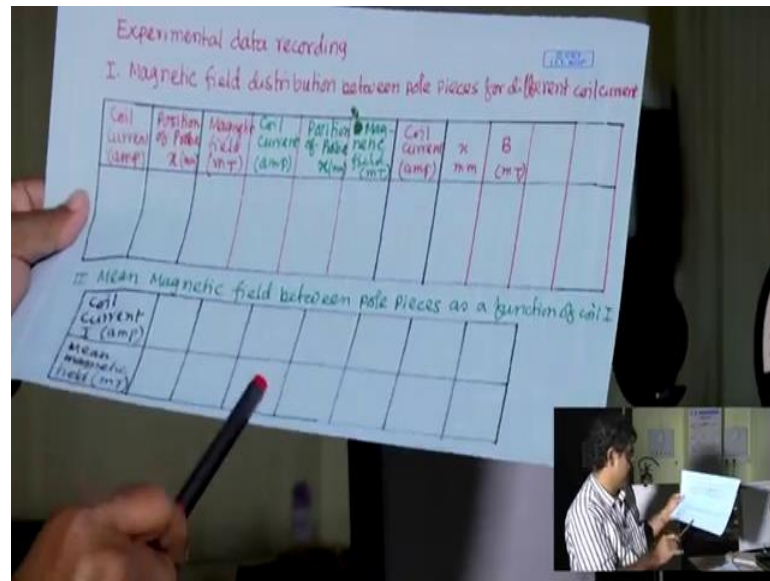 Experimental data recording
I. Magnetic field distribution between pole pieces for different coil current
Coil current (amp) Position of Probe x (mm) Magnetic field (mT) Coil current (amp) Position of Probe x (mm) Mag-netic field (mT) Coil current (amp) x mm B (mT)
II Mean Magnetic field between pole pieces as a function of coil I
Coil
Current
I (amp)
Mean
magnetic
field (mT)